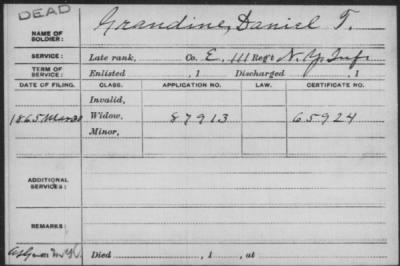 DEAD
NAME OF SOLDIER: Grandine, Daniel T.
SERVICE: Late rank, Co. E. 111 Reg't N.Y. Inf.
TERM OF SERVICE: Enlisted , 1 Discharged , 1
DATE OF FILING. CLASS. APPLICATION NO. LAW. CERTIFICATE NO.
Invalid,
1865 Mar 30 Widow, 87913 65924
Minor,
ADDITIONAL SERVICES:
REMARKS:
Died , 1 , at